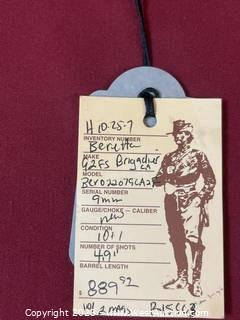 H 10-25-7
INVENTORY NUMBER
Beretta
MAKE
92FS Brigadier
CA
MODEL
SERIAL NUMBER
9mm
GAUGE/CHOKE – CALIBER
new
CONDITION
10+1
NUMBER OF SHOTS
4.9"
BARREL LENGTH
$ 889 92
w/ 2 mags
Copyright 202